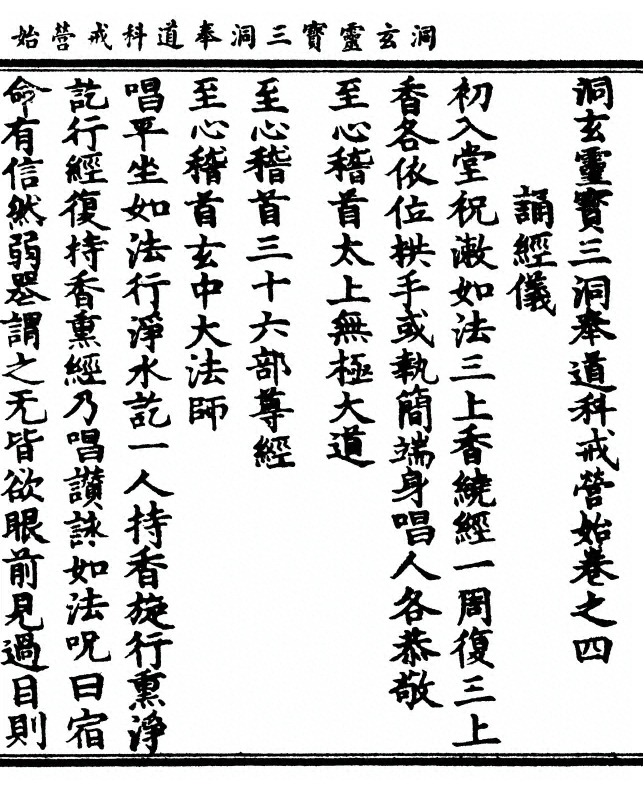 洞玄靈寶三洞奉道科戒營始
洞玄靈寶三洞奉道科戒營始卷之四
誦經儀
初入堂祝漱如法三上香繞經一周復三上
香各依位拱手或執簡端身唱人各恭敬
至心稽首太上無極大道
至心稽首三十六部尊經
至心稽首玄中大法師
唱平坐如法行淨水訖一人持香旋行熏淨
訖行經復持香熏經乃唱讚詠如法呪曰宿
命有信然弱喪謂之无皆欲眼前見過目則